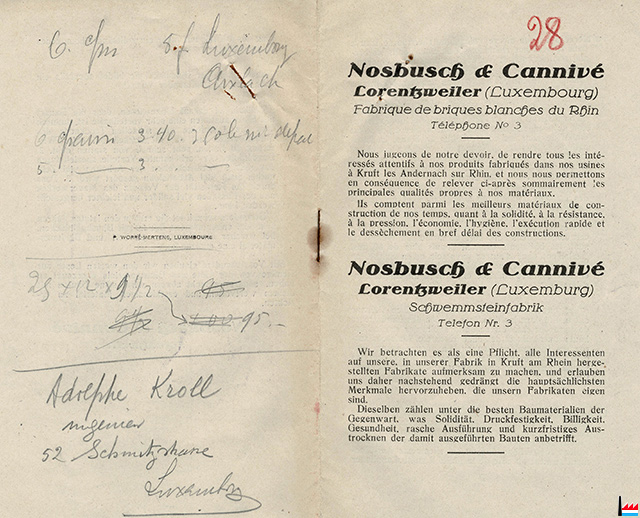 6. cm 5. f. Luxembourg
Anlach
6 cm 3 40. 35 ob m² depat
5. — 3. —
P. WORRÉ-MERTENS, LUXEMBOURG
25 x 12 x 9 1/2
95.-
Adolphe Kroll
ingenieur
52 Schmitzstrasse
Luxembg
28
Nosbusch & Cannivé
Lorentzweiler (Luxembourg)
Fabrique de briques blanches du Rhin
Téléphone No 3
Nous jugeons de notre devoir, de rendre tous les inté-
ressés attentifs à nos produits fabriqués dans nos usines
à Kruft les Andernach sur Rhin, et nous nous permettons
en conséquence de relever ci-après sommairement les
principales qualités propres à nos matériaux.
Ils comptent parmi les meilleurs matériaux de con-
struction de nos temps, quant à la solidité, à la résistance,
à la pression, l'économie, l'hygiène, l'exécution rapide et
le dessèchement en bref délai des constructions.
Nosbusch & Cannivé
Lorentzweiler (Luxemburg)
Schwemmsteinfabrik
Telefon Nr. 3
Wir betrachten es als eine Pflicht, alle Interessenten
auf unsere, in unserer Fabrik in Kruft am Rhein herge-
stellten Fabrikate aufmerksam zu machen, und erlauben
uns daher nachstehend gedrängt die hauptsächlichsten
Merkmale hervorzuheben, die unsern Fabrikaten eigen
sind.
Dieselben zählen unter die besten Baumaterialien der
Gegenwart, was Solidität, Druckfestigkeit, Billigkeit,
Gesundheit, rasche Ausführung und kurzfristiges Aus-
trocknen der damit ausgeführten Bauten anbetrifft.